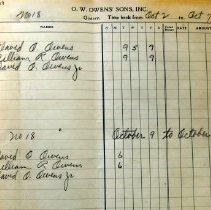 O. W. OWENS' SONS, INC.
No 18 Quarry. Time book from Oct 2 to Oct 7
NAMES M T W T F S
David O. Owens 9 5 9
William R. Owens 9 9
David O. Owens Jr
No 18 October 9 to October
David O Owens 6
William R. Owens 6
David O. Owens Jr